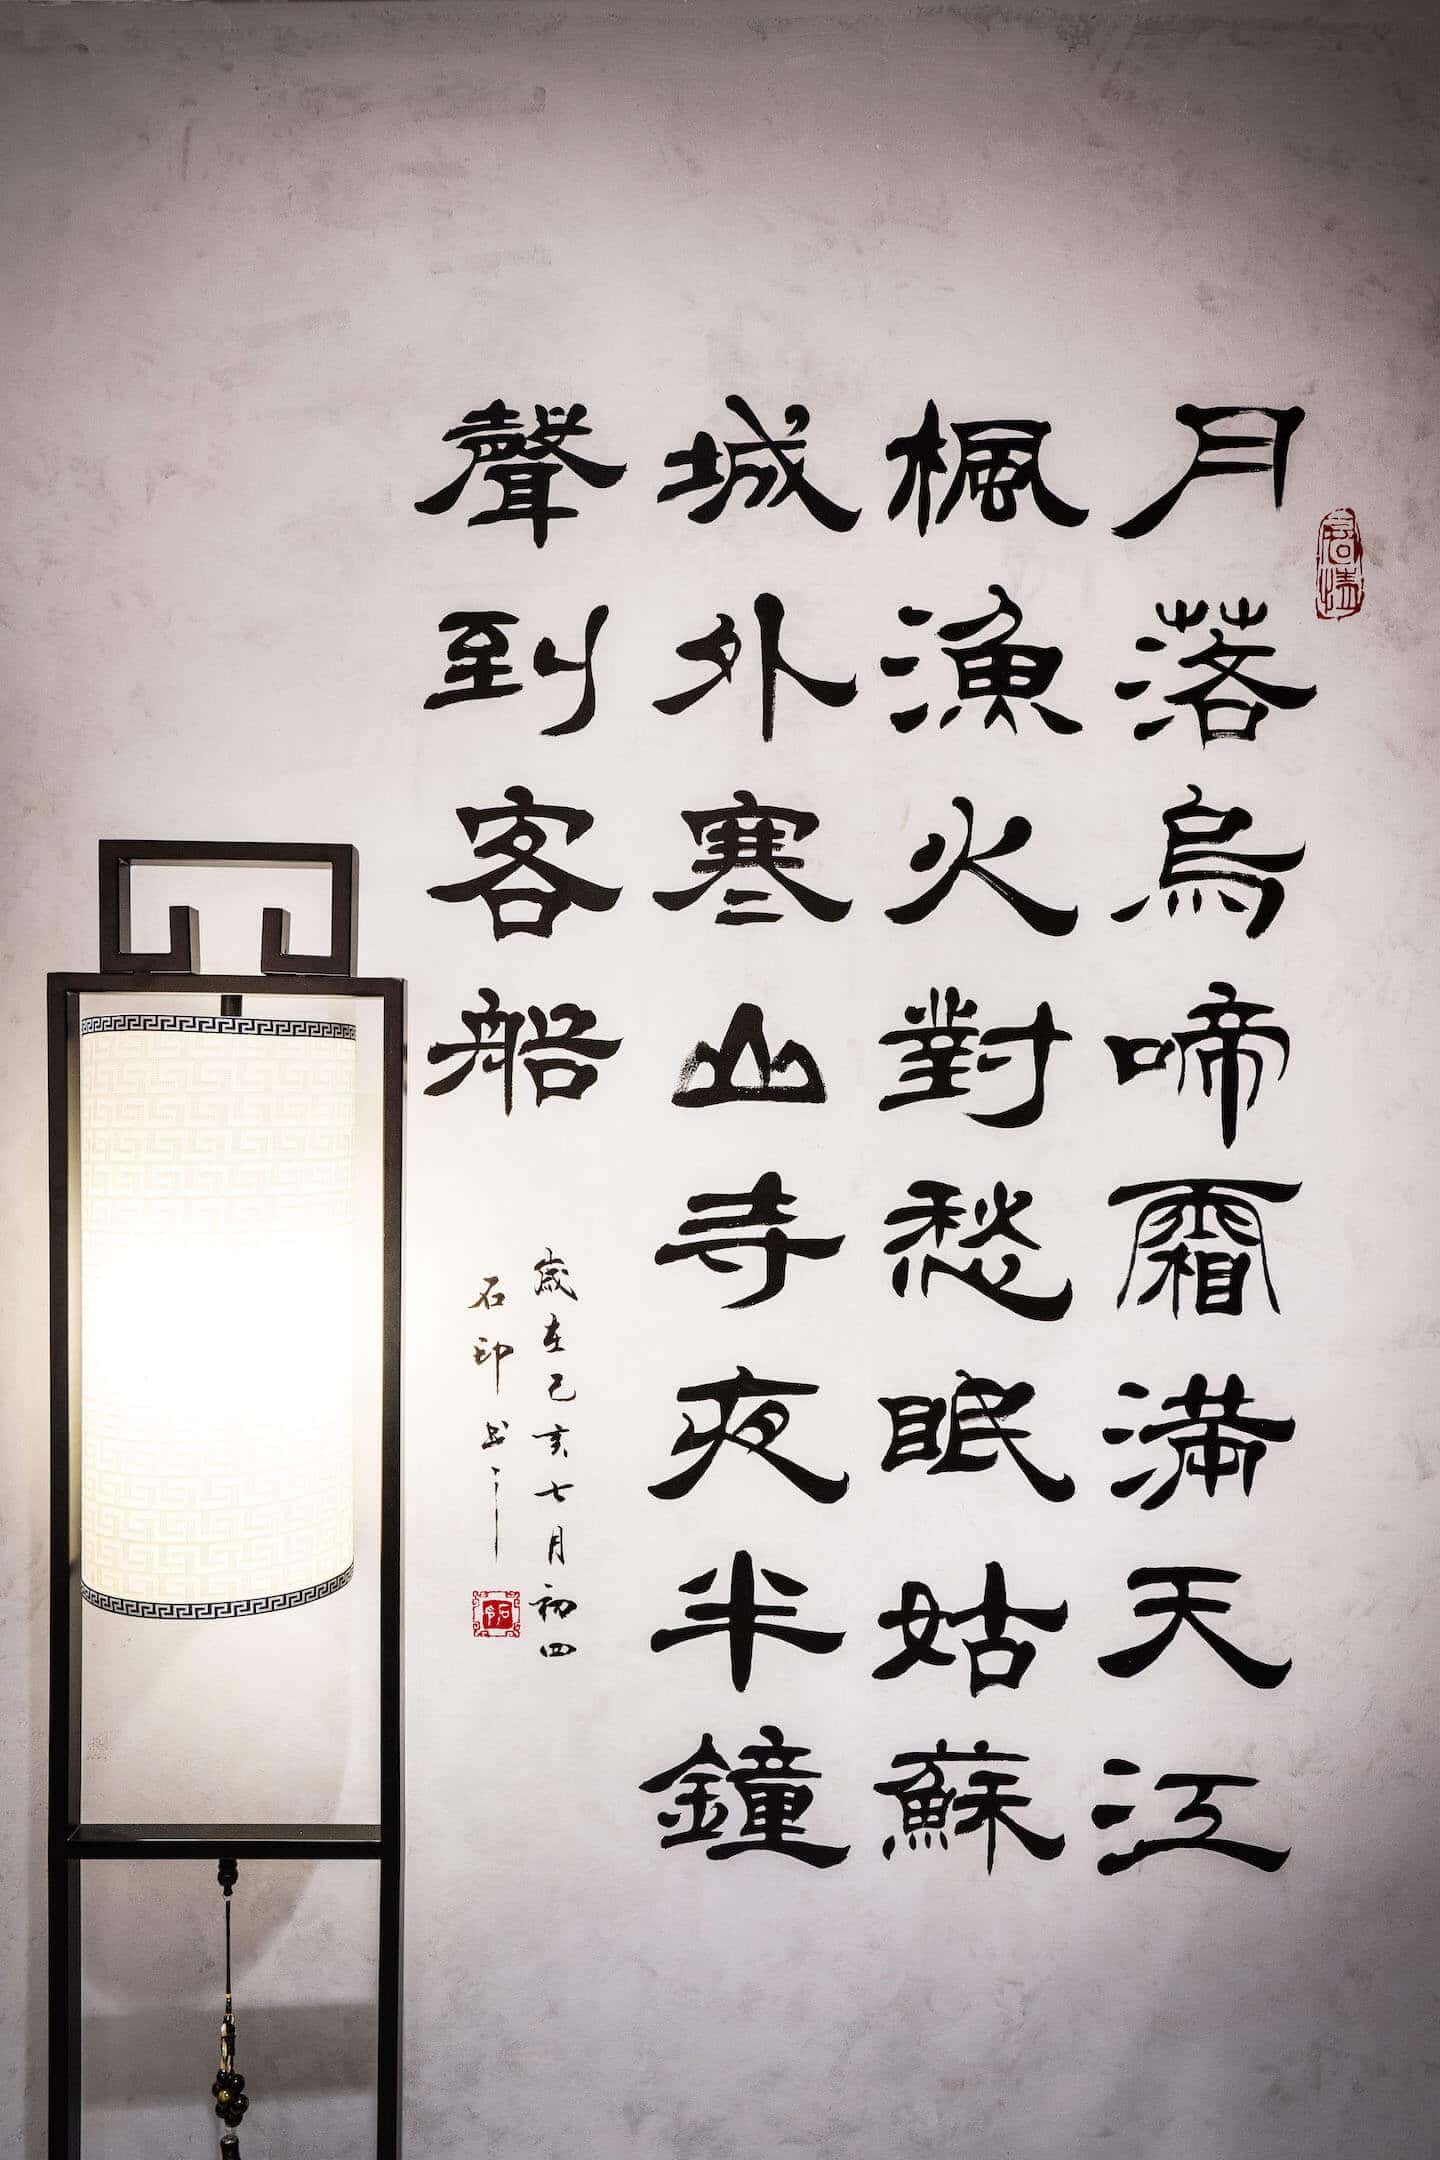 月落烏啼霜滿天江
楓漁火對愁眠姑蘇
城外寒山寺夜半鐘
聲到客船
歲在己亥七月初四
石印書